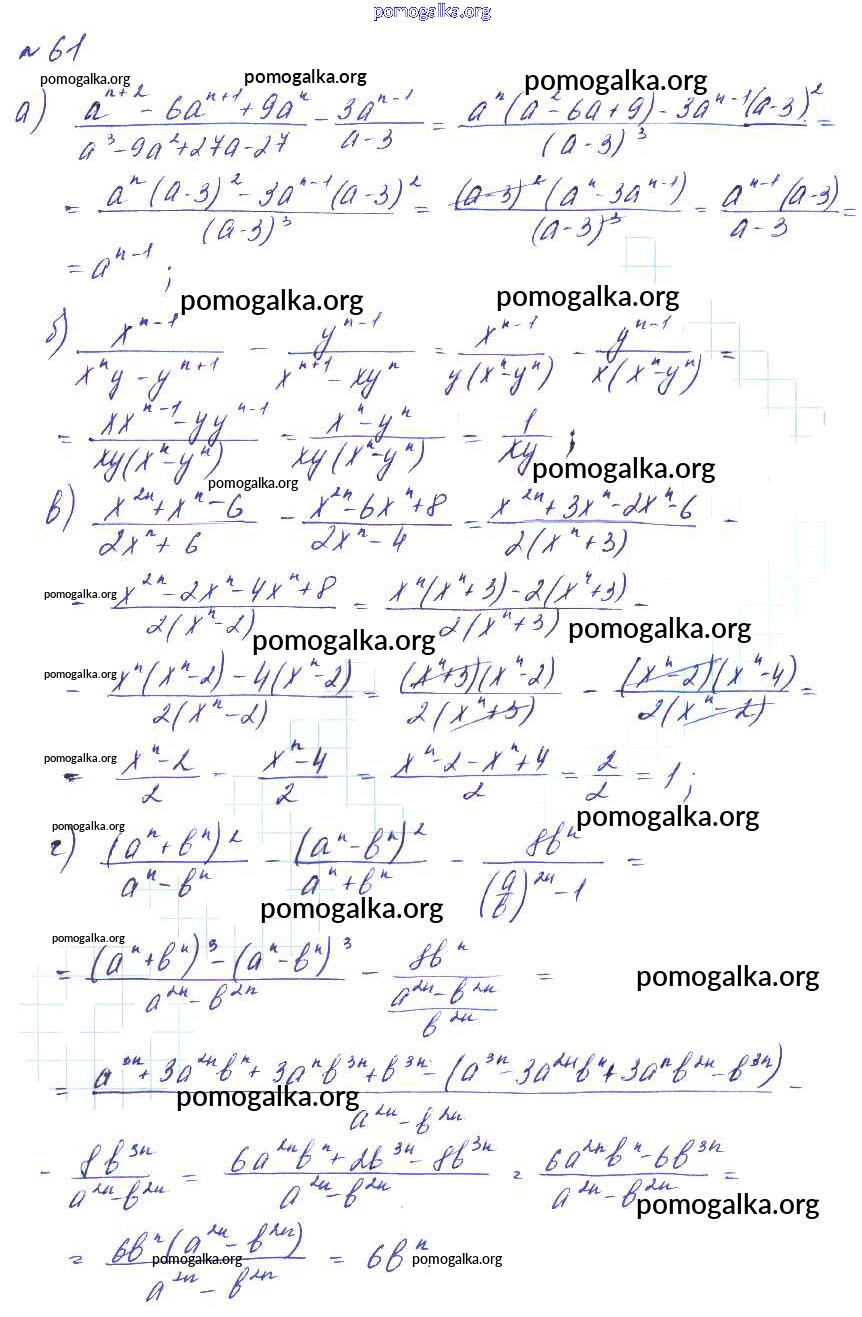 pomogalka.org
№ 61
pomogalka.org pomogalka.org pomogalka.org
а) (a^(n+2) - 6a^(n+1) + 9a^n)/(a^3 - 9a^2 + 27a - 27) - (3a^(n-1))/(a-3) = (a^n(a^2 - 6a + 9) - 3a^(n-1)(a-3)^2)/((a-3)^3) =
= (a^n(a-3)^2 - 3a^(n-1)(a-3)^2)/((a-3)^3) = ((a-3)^2(a^n - 3a^(n-1)))/((a-3)^3) = (a^(n-1)(a-3))/(a-3) =
= a^(n-1);
pomogalka.org pomogalka.org
б) (x^(n-1))/(x^n y - y^(n+1)) - (y^(n-1))/(x^(n+1) - xy^n) = (x^(n-1))/(y(x^n - y^n)) - (y^(n-1))/(x(x^n - y^n)) =
= (xx^(n-1) - yy^(n-1))/(xy(x^n - y^n)) = (x^n - y^n)/(xy(x^n - y^n)) = 1/(xy);
pomogalka.org pomogalka.org
в) (x^(2n) + x^n - 6)/(2x^n + 6) - (x^(2n) - 6x^n + 8)/(2x^n - 4) = (x^(2n) + 3x^n - 2x^n - 6)/(2(x^n + 3)) -
pomogalka.org
- (x^(2n) - 2x^n - 4x^n + 8)/(2(x^n - 2)) = (x^n(x^n + 3) - 2(x^n + 3))/(2(x^n + 3)) -
pomogalka.org pomogalka.org
pomogalka.org
- (x^n(x^n - 2) - 4(x^n - 2))/(2(x^n - 2)) = ((x^n + 3)(x^n - 2))/(2(x^n + 3)) - ((x^n - 2)(x^n - 4))/(2(x^n - 2)) =
pomogalka.org
= (x^n - 2)/2 - (x^n - 4)/2 = (x^n - 2 - x^n + 4)/2 = 2/2 = 1;
pomogalka.org pomogalka.org
г) ((a^n + b^n)^2)/(a^n - b^n) - ((a^n - b^n)^2)/(a^n + b^n) - (8b^n)/((a/b)^(2n) - 1) =
pomogalka.org
pomogalka.org pomogalka.org
= ((a^n + b^n)^3 - (a^n - b^n)^3)/(a^(2n) - b^(2n)) - (8b^n)/((a^(2n) - b^(2n))/(b^(2n))) =
= (a^(3n) + 3a^(2n)b^n + 3a^n b^(3n) + b^(3n) - (a^(3n) - 3a^(2n)b^n + 3a^n b^(2n) - b^(3n)))/(a^(2n) - b^(2n)) -
pomogalka.org
- (8b^(3n))/(a^(2n) - b^(2n)) = (6a^(2n)b^n + 2b^(3n) - 8b^(3n))/(a^(2n) - b^(2n)) = (6a^(2n)b^n - 6b^(3n))/(a^(2n) - b^(2n)) =
pomogalka.org
= (6b^n(a^(2n) - b^(2n)))/(a^(2n) - b^(2n)) = 6b^n.
pomogalka.org pomogalka.org